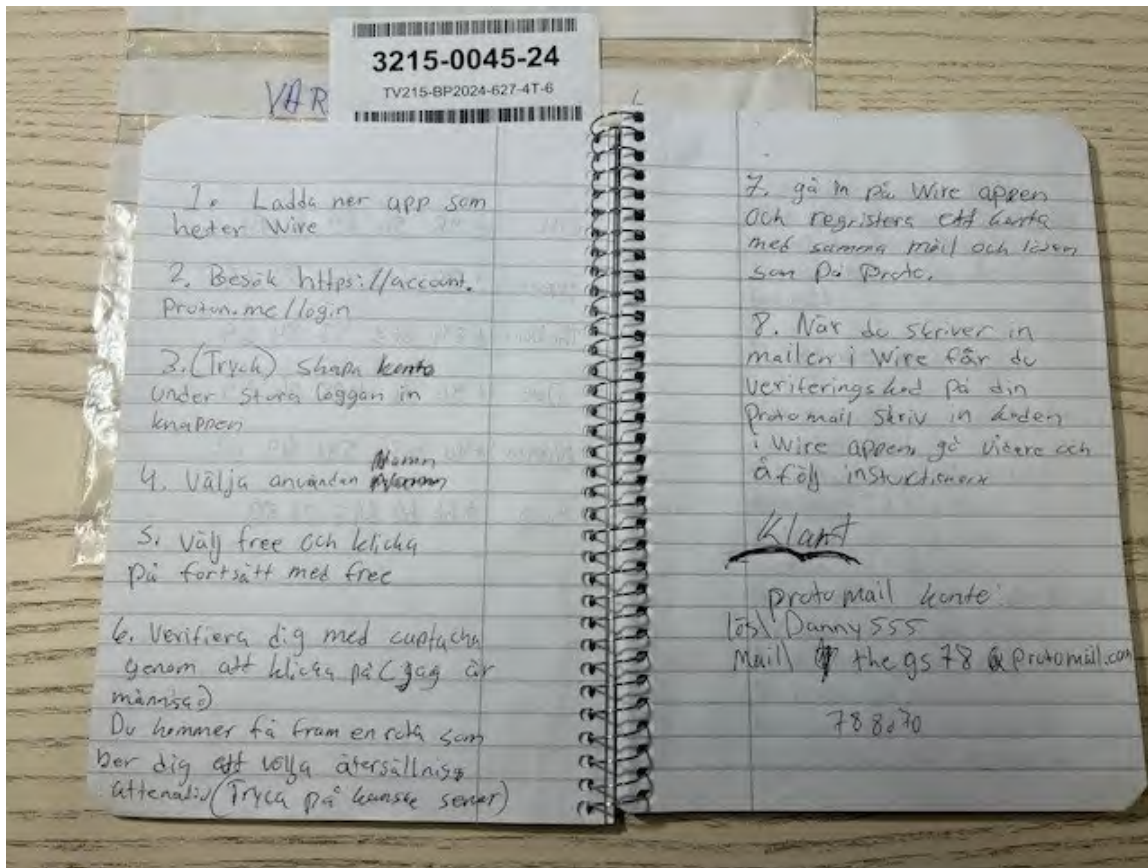 3215-0045-24
TV215-BP2024-627-4T-6
VAR
1. Ladda ner app som
heter Wire
2. Besök https://account.
Proton.me/login
3. (Tryck) skapa konto
under stora loggan in
knappen
4. Välja användan Namn
5. välj free och klicka
på fortsätt med free
6. Verifiera dig med captacha
genom att klicka på (Jag är
människa)
Du kommer få fram en ruta som
ber dig att välja
(Tryck på kanske senar)
7. gå in på Wire appen
och regristera ett konto
med samma mail och lösen
som på Proto.
8. När du skriver in
mailen i Wire får du
veriferingskod på din
Protomail skriv in koden
i Wire appen, gå vidare och
åfölj
Klart
proto mail konto
Danny 555
Mail the gs 78 @ protomail.com